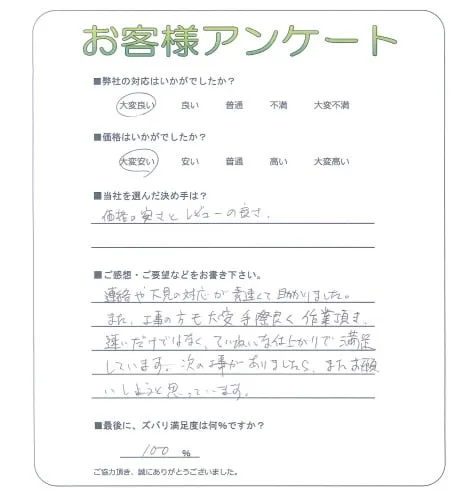 お客様アンケート
■弊社の対応はいかがでしたか？
大変良い 良い 普通 不満 大変不満
■価格はいかがでしたか？
大変安い 安い 普通 高い 大変高い
■当社を選んだ決め手は？
価格の安さとレビューの良さ.
■ご感想・ご要望などをお書き下さい。
連絡や下見の対応が素速くて助かりました。
また、工事の方も大変手際良く作業頂き、
速いだけではなく、ていねいな仕上がりで満足
しています。次の工事がありましたら、またお願
いしようと思っています。
■最後に、ズバリ満足度は何%ですか？
100 %
ご協力頂き、誠にありがとうございました。